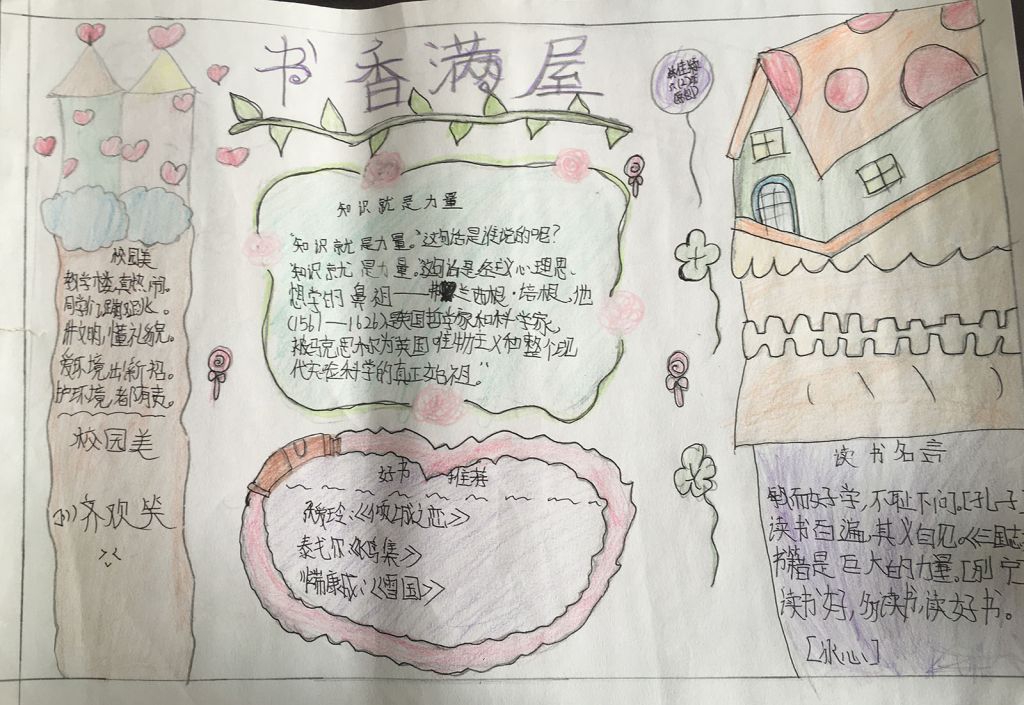 书香满屋
校园美
教学楼,真热闹。
同学们,蹦跳。
讲文明,懂礼貌。
爱环境,出新招。
护环境,都有责。
校园美
齐欢笑
知识就是力量
"知识就是力量。"这句话是谁说的呢?
知识就是力量。这句话是经主义心理思
想学的鼻祖——兰西根·培根,他
(1561—1626)是英国哲学家和科学家,
被马克思称为英国唯物主义和整个现
代实验科学的真正始祖。"
好书推荐
张爱玲:《倾城之恋》
泰戈尔《飞鸟集》
川端康成:《雪国》
读书名言
敏而好学,不耻下问。[孔子
读书百遍,其义自见。《三国志
书籍是巨大的力量。[列宁
读书好,多读书,读好书。
[冰心]